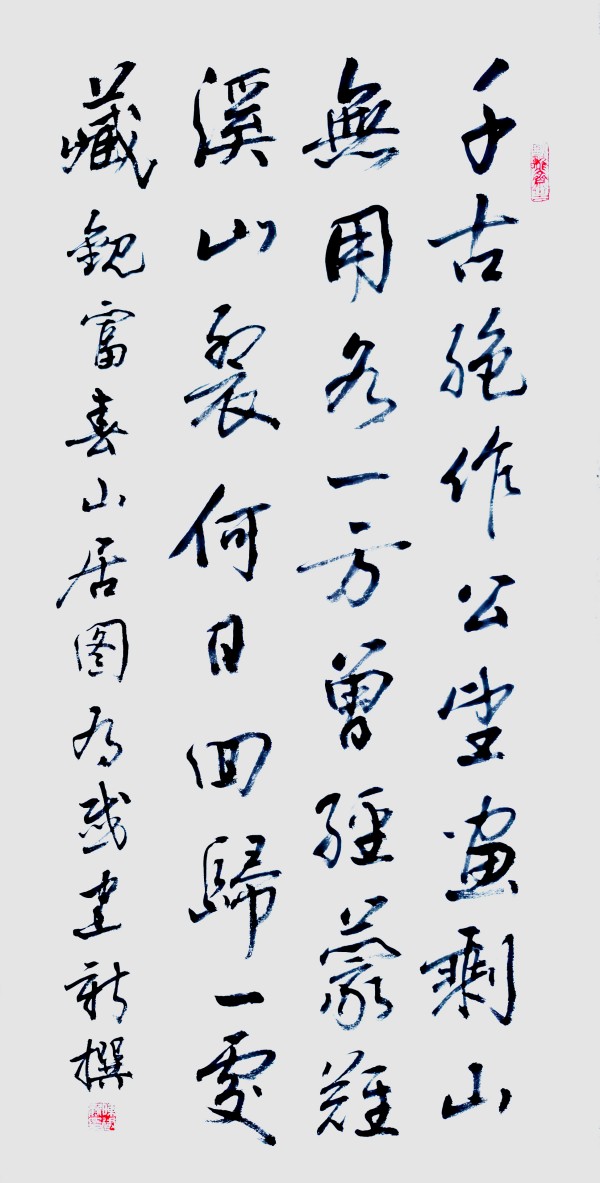 千古絶作公望畫剩山
無用各一方曾經蒙難
溪山裂何日回歸一處
藏觀富春山居图有感建新撰